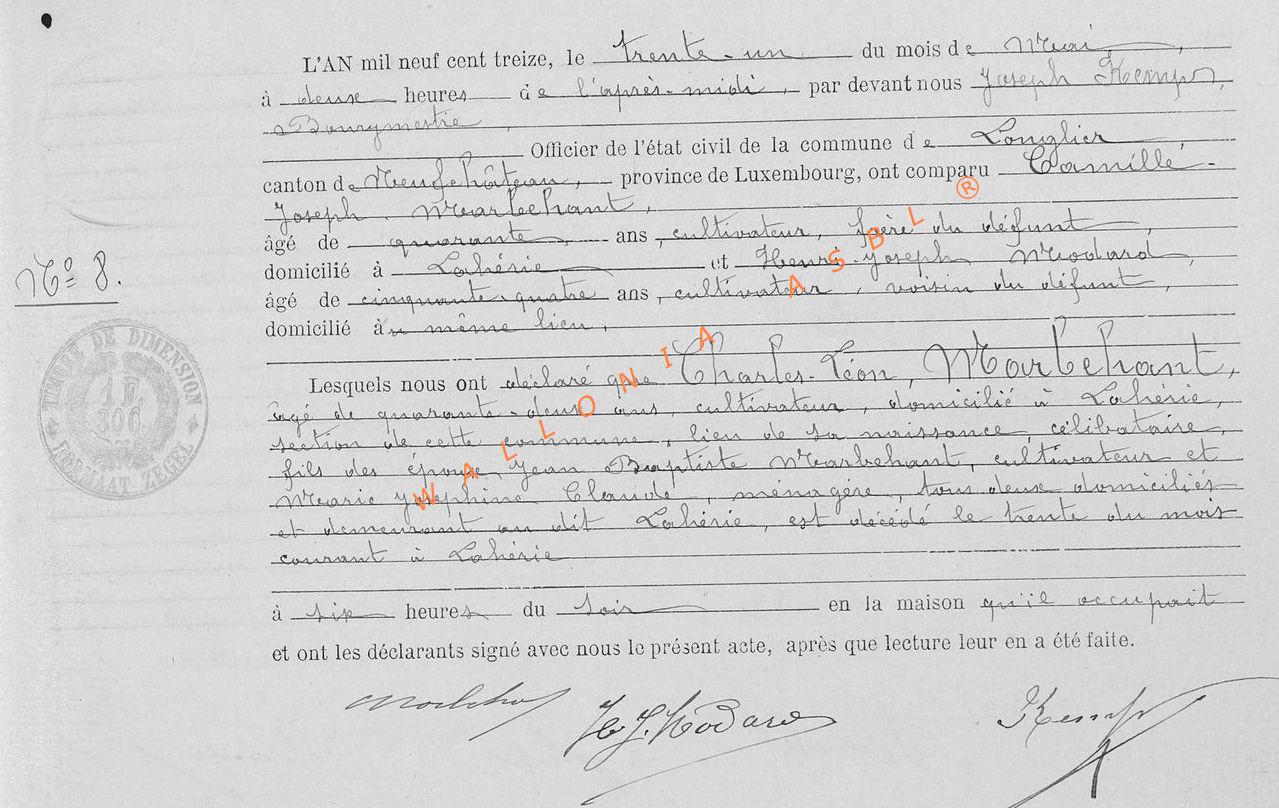 L'AN mil neuf cent treize, le trente-un du mois de Mai,
à deux heures de l'après-midi par devant nous Joseph Kemp,
Bourgmestre,
Officier de l'état civil de la commune de Longlier
canton de Neufchâteau, province de Luxembourg, ont comparu Camille-
Joseph Marbehant,
âgé de quarante ans, cultivateur, frère du défunt,
domicilié à Lahérie et Henri-Joseph Modard,
N° 8.
âgé de cinquante-quatre ans, cultivateur, voisin du défunt,
domicilié au même lieu,
TIMBRE DE DIMENSION
1 F.
30 C.
FORMAAT ZEGEL
Lesquels nous ont déclaré que Charles-Léon, Marbehant,
âgé de quarante-deux ans, cultivateur, domicilié à Lahérie,
section de cette commune, lieu de sa naissance, célibataire,
fils des époux Jean Baptiste Marbehant, cultivateur et
Marie Joséphine Claude, ménagère, tous deux domiciliés
et demeurant au dit Lahérie, est décédé le trente du mois
courant à Lahérie
à six heures du soir en la maison qu'il occupait
et ont les déclarants signé avec nous le présent acte, après que lecture leur en a été faite.
H. J. Modard Kemp
WALLONIA ASBL ®